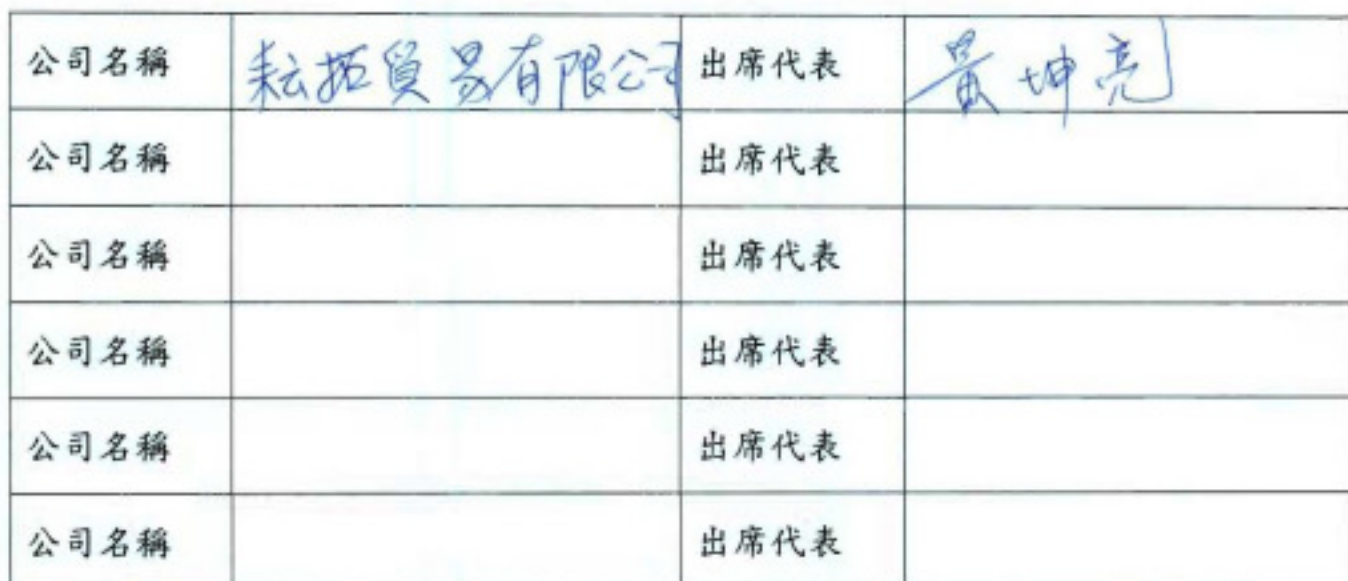 公司名稱 耘拓貿易有限公司 出席代表 黃坤亮
公司名稱 出席代表
公司名稱 出席代表
公司名稱 出席代表
公司名稱 出席代表
公司名稱 出席代表